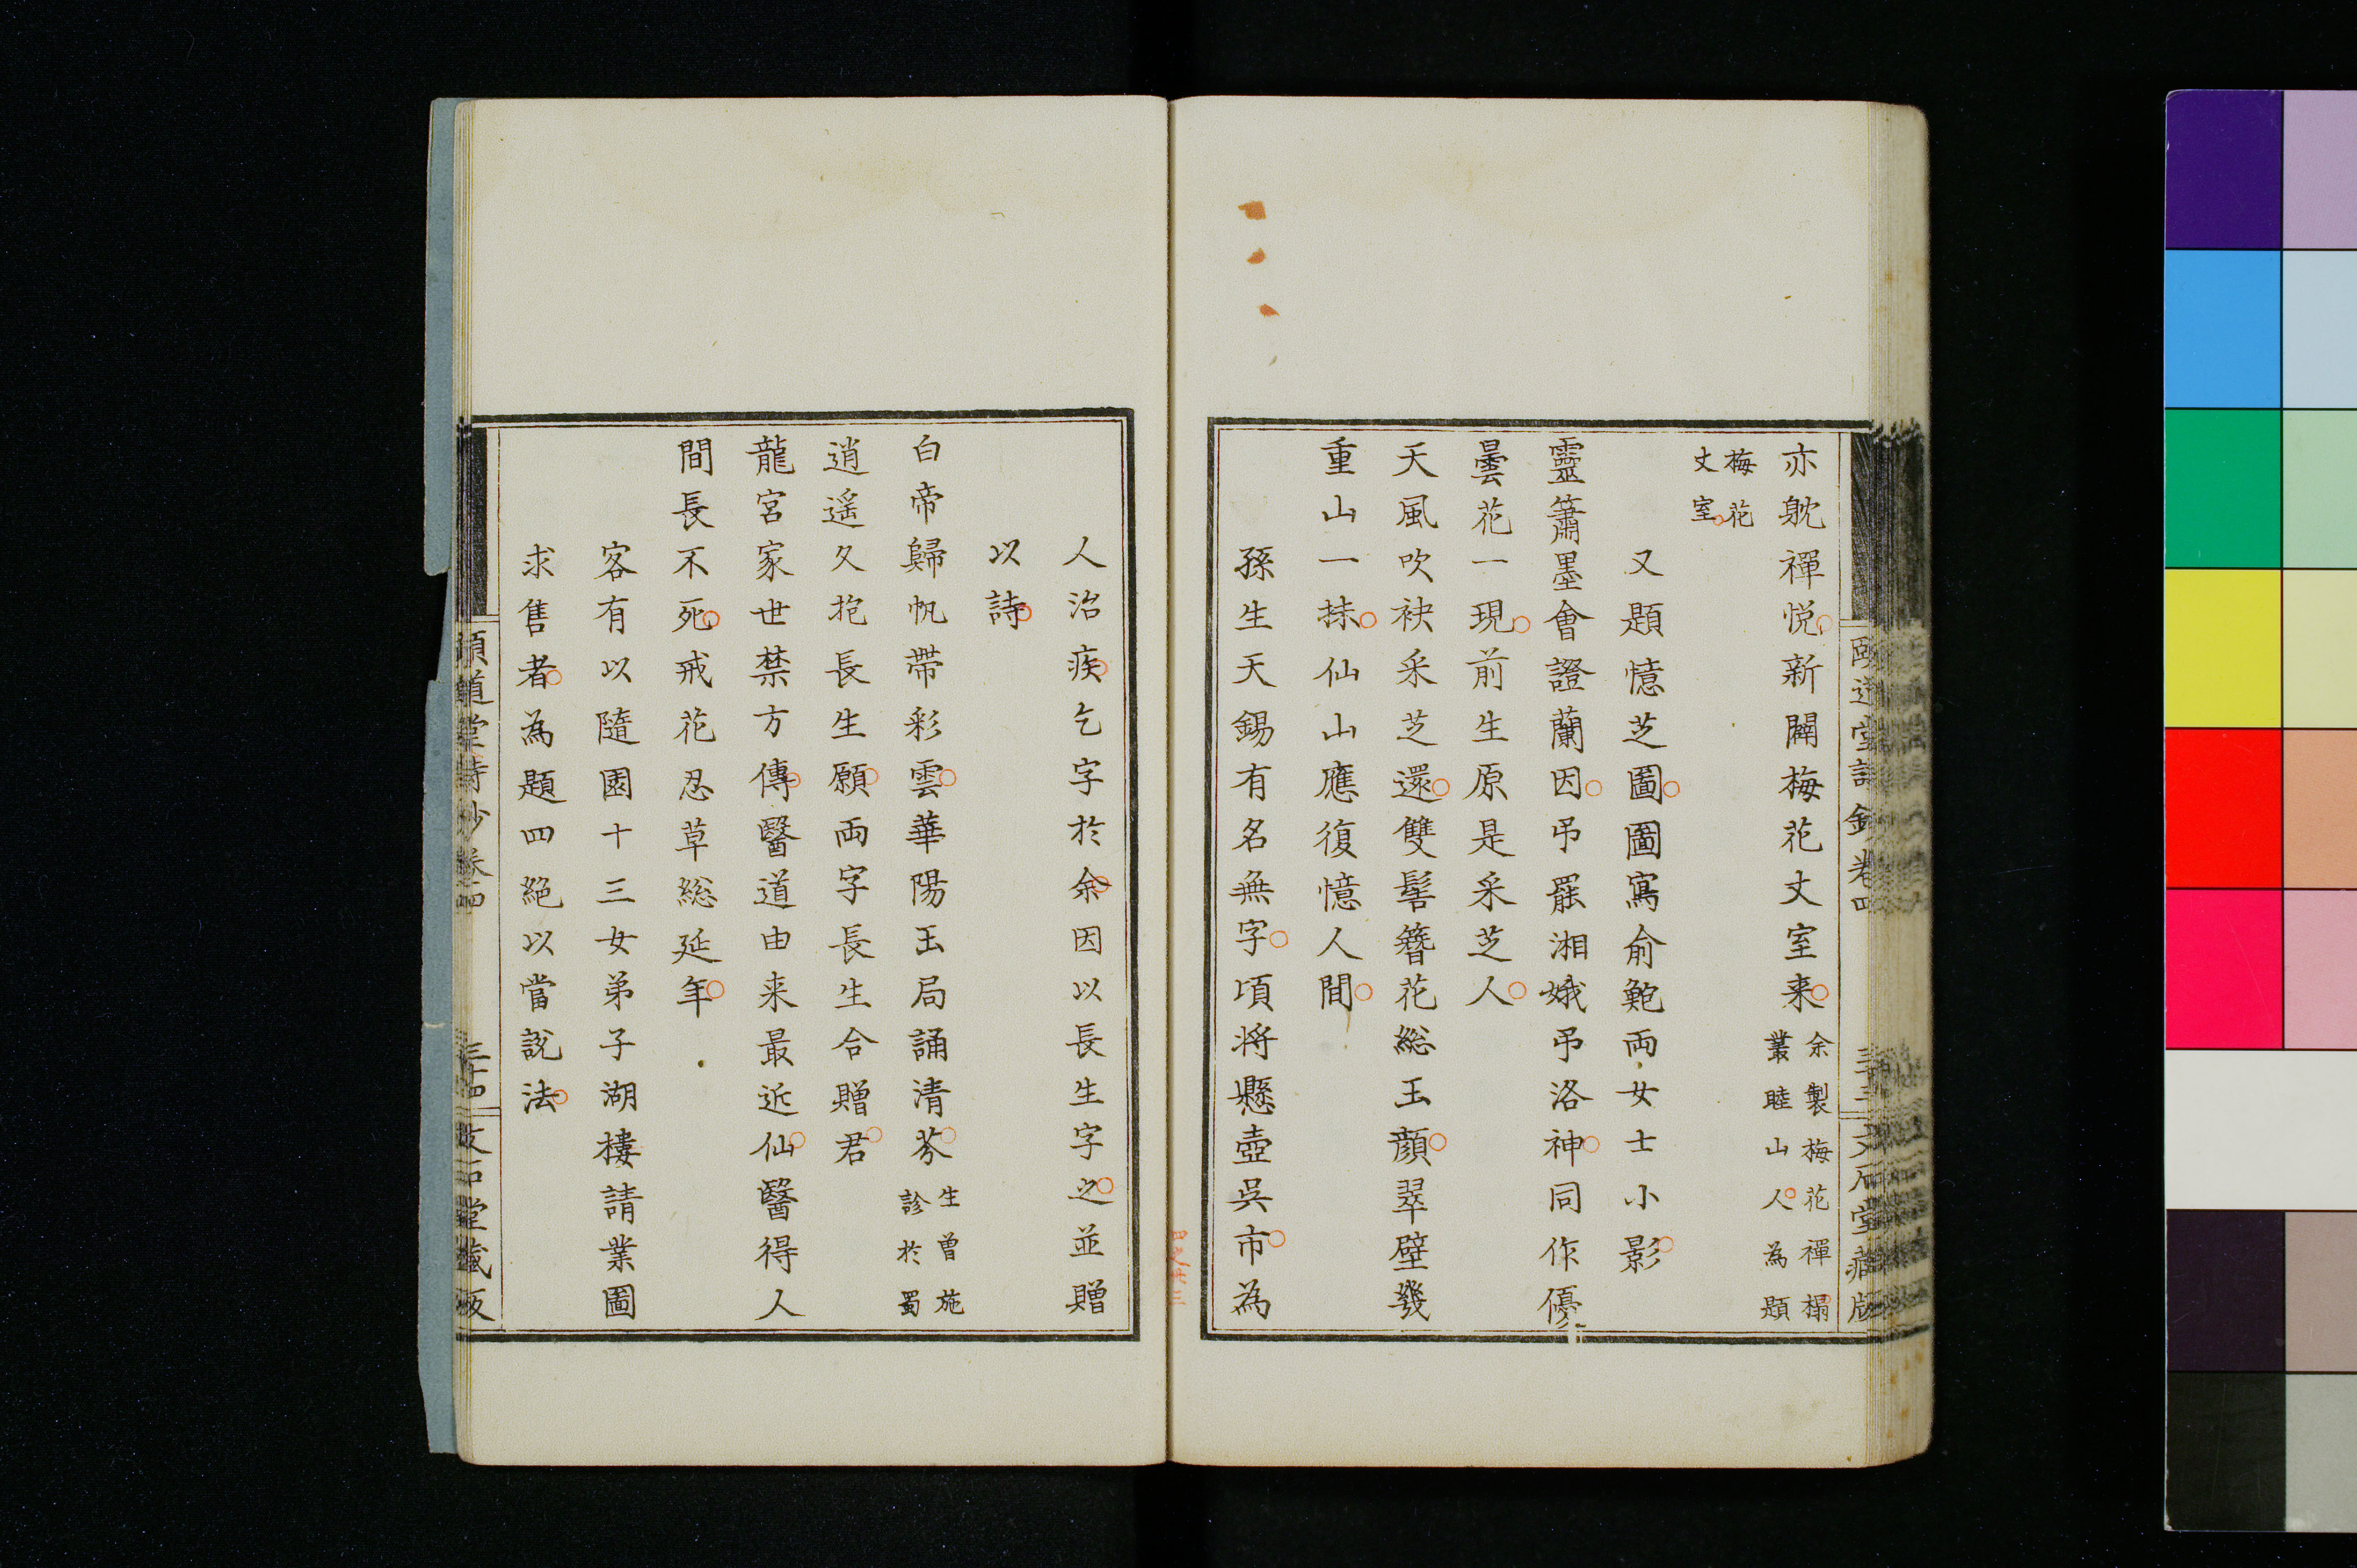 亦躭禪悦新闢梅花丈室来余製梅花禪榻
叢睦山人為題
梅花
丈室
又題憶芝圖圖寫俞鮑両女士小影
靈簫墨會證蘭因吊罷湘娥吊洛神同作優
曇花一現前生原是采芝人
天風吹袂采芝還雙髻簪花総玉顔翠壁幾
重山一抹仙山應復憶人間
孫生天錫有名無字頃将懸壺呉市為
人治疾乞字於余因以長生字之並贈
以詩
白帝歸帆帶彩雲華陽玉局誦清芬生曾施
診於蜀
逍遥久抱長生願両字長生合贈君
龍宮家世禁方傳醫道由来最近仙醫得人
間長不死戒花忍草総延年
客有以隨園十三女弟子湖樓請業圖
求售者為題四絕以當説法
頤道堂詩鈔卷四 三十四 文石堂藏板